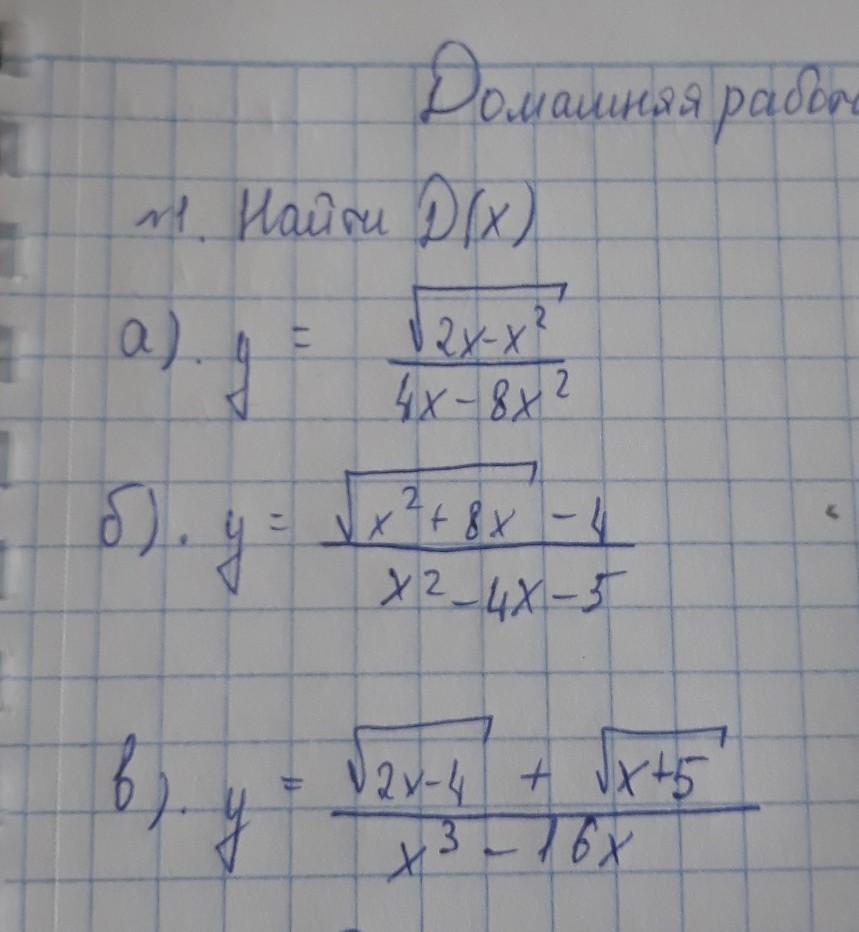 Домашняя работ
№1. Найти D(x)
а). y = √(2x-x²) / (4x-8x²)
б). y = (√(x²+8x) - 4) / (x²-4x-5)
в). y = (√(2x-4) + √(x+5)) / (x³-16x)